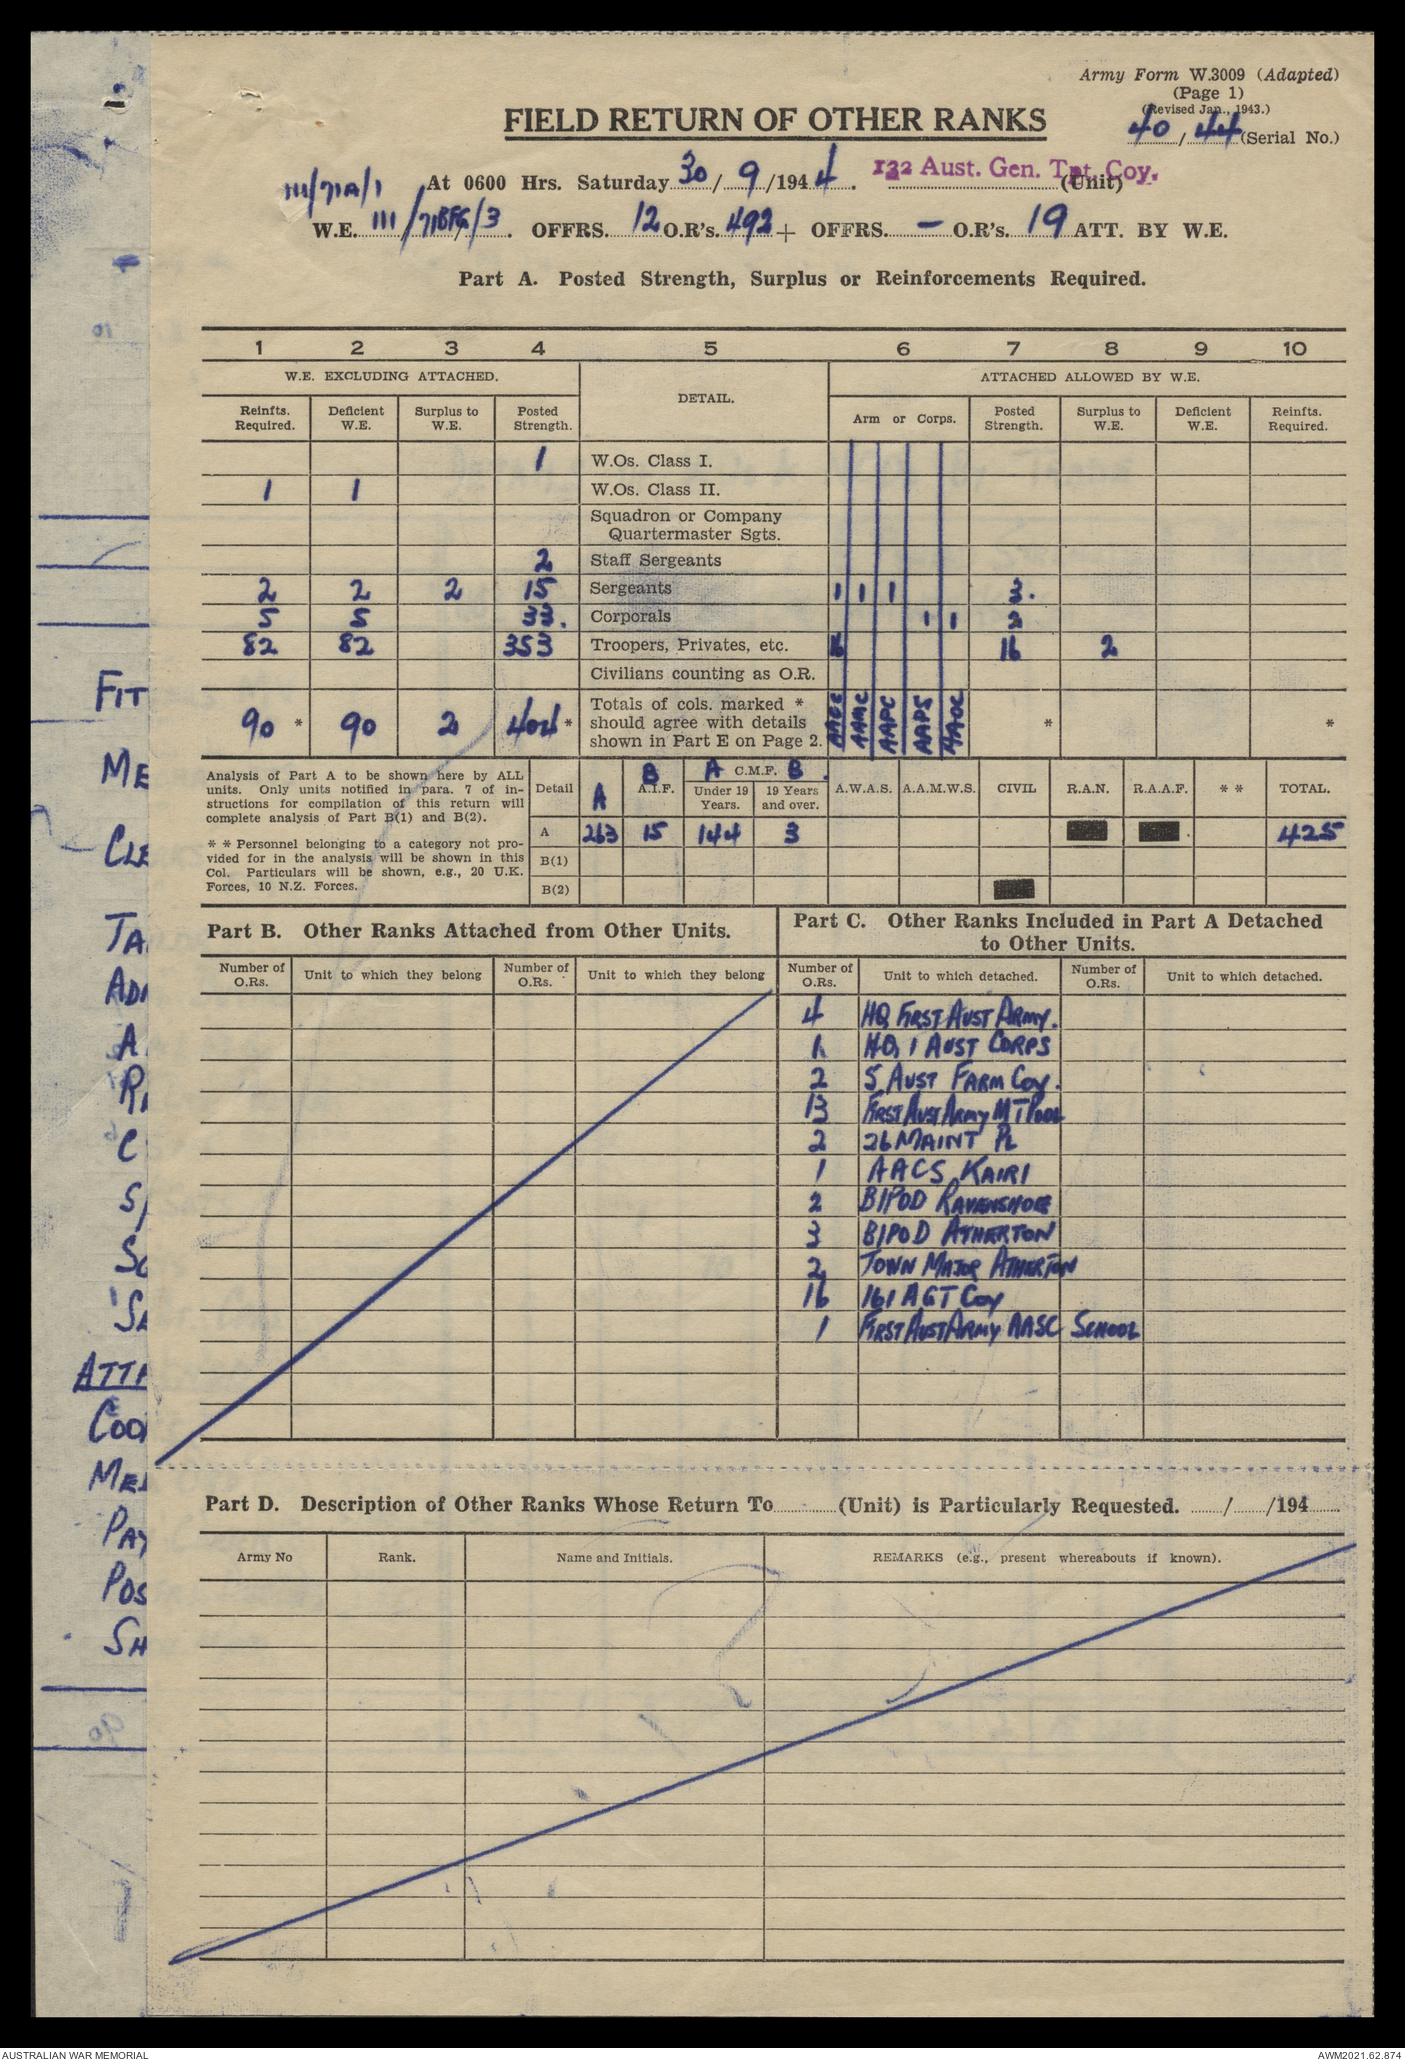 Army Form W.3009 (Adapted)
(Page 1)
(Revised Jan., 1943.)
40/44 (Serial No.)
FIELD RETURN OF OTHER RANKS
At 0600 Hrs. Saturday 30/9/1944. 132 Aust. Gen. Tpt. Coy. (Unit)
111/71A/1
W.E. 111/71BFG/3. OFFRS. 12 O.R's. 492 + OFFRS. — O.R's. 19 ATT. BY W.E.
Part A. Posted Strength, Surplus or Reinforcements Required.
1 2 3 4 5 6 7 8 9 10
W.E. EXCLUDING ATTACHED. DETAIL. ATTACHED ALLOWED BY W.E.
Reinfts. Required. Deficient W.E. Surplus to W.E. Posted Strength. Arm or Corps. Posted Strength. Surplus to W.E. Deficient W.E. Reinfts. Required.
1 W.Os. Class I.
1 1 W.Os. Class II.
Squadron or Company
Quartermaster Sgts.
2 Staff Sergeants
2 2 2 15 Sergeants 1 1 1 3.
5 5 33. Corporals 1 1 2
82 82 353 Troopers, Privates, etc. 16 16 2
Civilians counting as O.R.
90 * 90 2 404 * Totals of cols. marked * should agree with details shown in Part E on Page 2. AAMC AAPC AAPS AAOC * *
Analysis of Part A to be shown here by ALL
units. Only units notified in para. 7 of in-
structions for compilation of this return will
complete analysis of Part B(1) and B(2).
* * Personnel belonging to a category not pro-
vided for in the analysis will be shown in this
Col. Particulars will be shown, e.g., 20 U.K.
Forces, 10 N.Z. Forces.
Detail A B A.I.F. A C.M.F. B. Under 19 Years. 19 Years and over. A.W.A.S. A.A.M.W.S. CIVIL R.A.N. R.A.A.F. * * TOTAL.
A 263 15 144 3 425
B(1)
B(2)
Part B. Other Ranks Attached from Other Units.
Number of O.Rs. Unit to which they belong Number of O.Rs. Unit to which they belong
Part C. Other Ranks Included in Part A Detached
to Other Units.
Number of O.Rs. Unit to which detached. Number of O.Rs. Unit to which detached.
4 HQ FIRST AUST ARMY.
1 HQ 1 AUST CORPS
2 5 AUST FARM COY.
13 FIRST AUST ARMY MT POOL
2 26 MAINT PL
1 AACS KAIRI
2 BIPOD RAVENSHOE
3 BIPOD ATHERTON
2 TOWN MAJOR ATHERTON
16 161 AGT COY
1 FIRST AUST ARMY AASC SCHOOL
Part D. Description of Other Ranks Whose Return To (Unit) is Particularly Requested. / /194
Army No Rank. Name and Initials. REMARKS (e.g., present whereabouts if known).
FIT
ME
CLE
TA
ADM
A
R
C
S
SC
SA
ATTA
COO
MED
PAY
POS
SH
AUSTRALIAN WAR MEMORIAL AWM2021.62.874